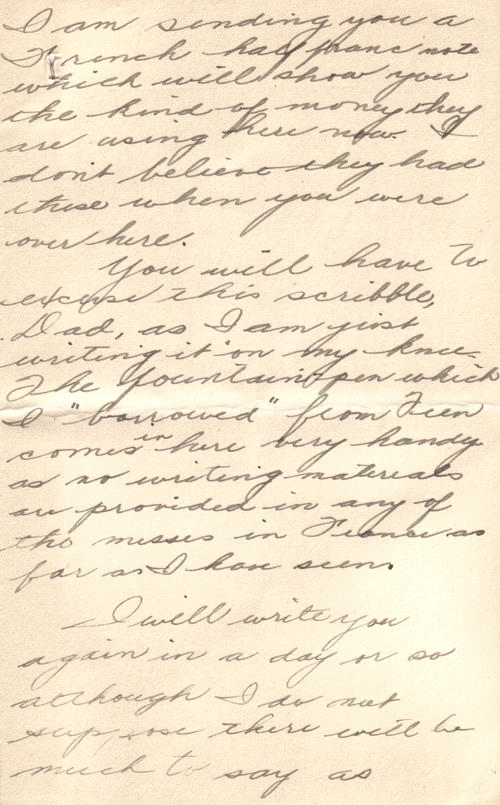 I am sending you a
French half franc note
which will show you
the kind of money they
are using here now. I
don't believe they had
these when you were
over here.
You will have to
excuse this scribble,
Dad, as I am just
writing it on my knee.
The fountain pen which
I "borrowed" from Feen
comes in here very handy
as no writing materials
are provided in any of
the messes in France as
far as I have seen.
I will write you
again in a day or so
although I do not
suppose there will be
much to say as